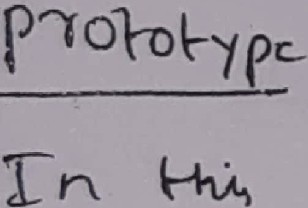 prototype
In this